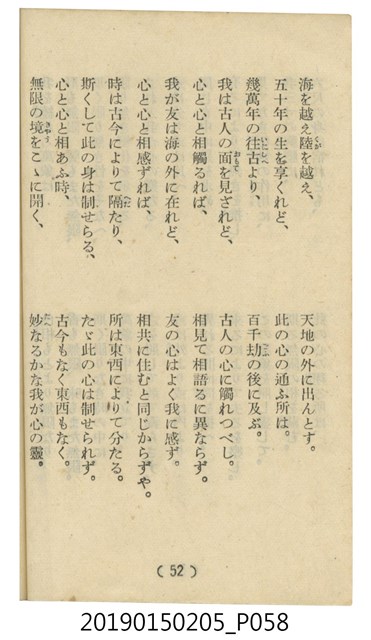 海を越え陸を越え、
五十年の生を享くれど、
幾萬年の往古より、
我は古人の面を見ざれど、
心と心と相觸るれば、
我が友は海の外に在れど、
心と心と相感ずれば、
時は古今によりて隔たり、
斯くして此の身は制せらる、
心と心と相あふ時、
無限の境をこゝに開く、
天地の外に出んとす。
此の心の通ふ所は。
百千劫の後に及ぶ。
古人の心に觸れつべし。
相見て相語るに異ならず。
友の心はよく我に感ず。
相共に住むと同じからずや。
所は東西によりて分たる。
たゞ此の心は制せられず。
古今もなく東西もなく。
妙なるかな我が心の靈。
(52)
20190150205_P058